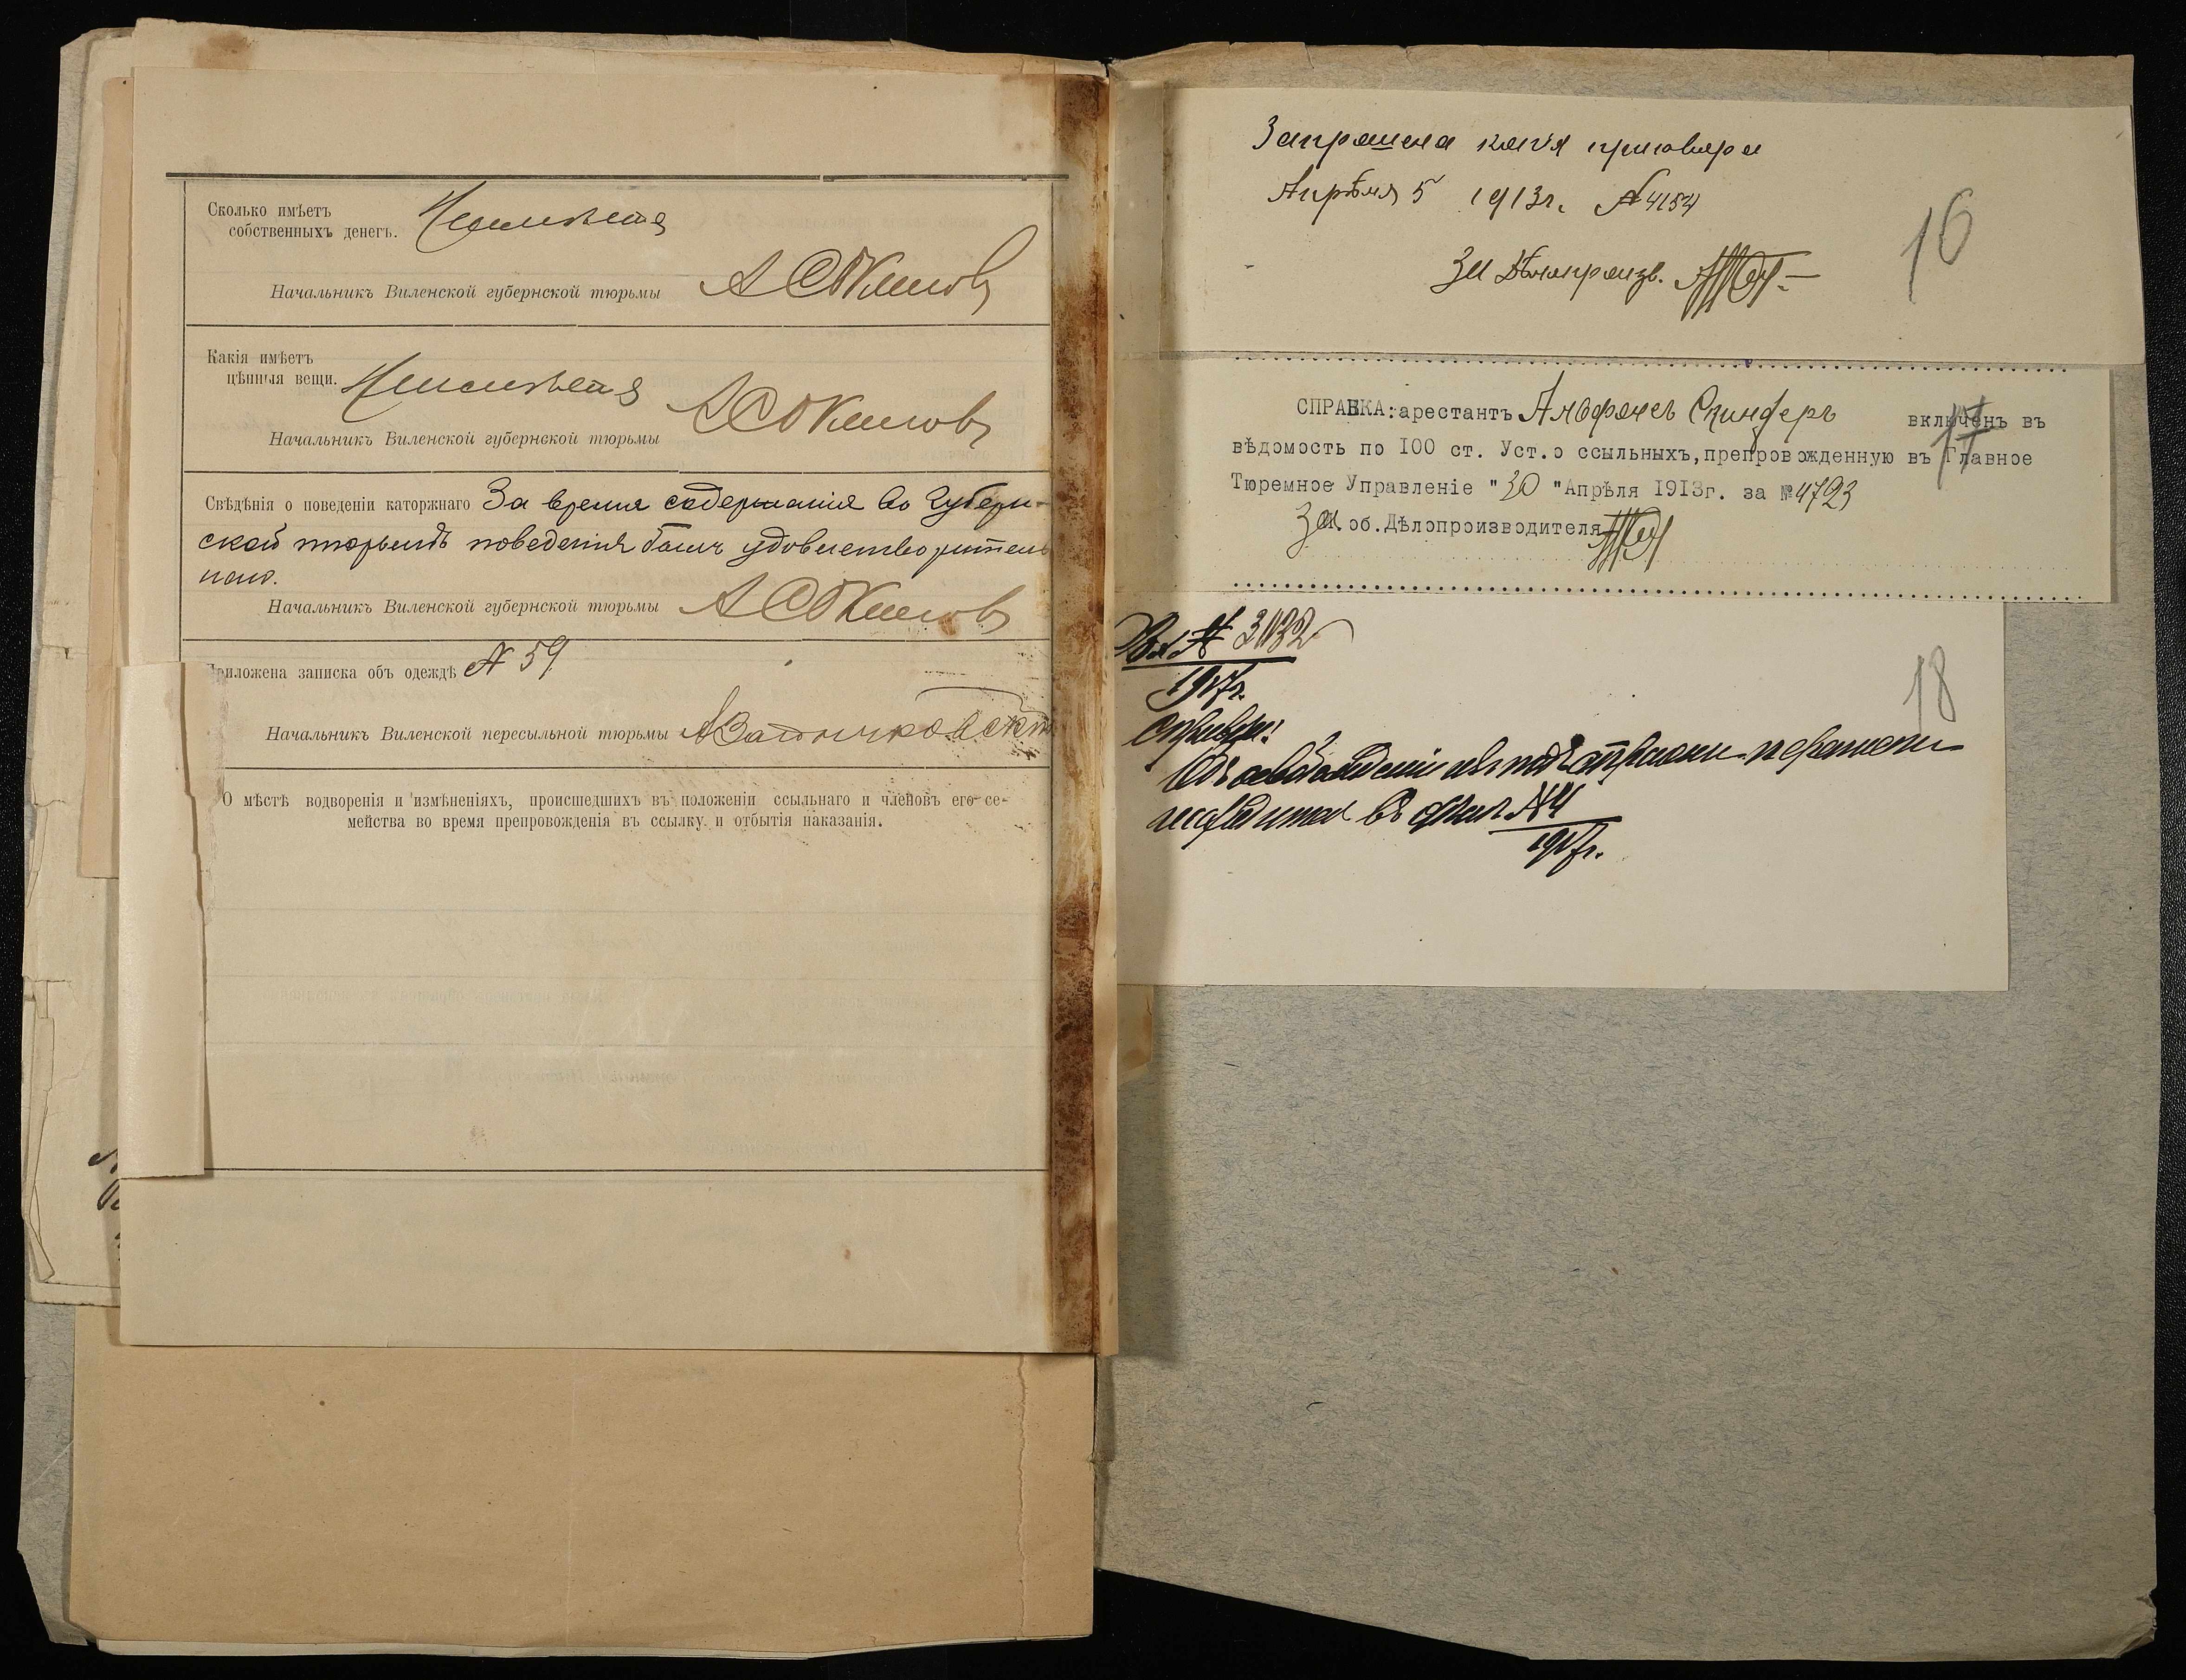 Сколько имѣетъ
собственныхъ денегъ.
Неимѣетъ
Начальникъ Виленской губернской тюрьмы
Какія имѣетъ
цѣнныя вещи.
Неимѣетъ
Начальникъ Виленской губернской тюрьмы
Свѣдѣнія о поведеніи каторжнаго За время содержанія въ Губерн-
ской тюрьмѣ поведенія былъ удовлетворитель
наго.
Начальникъ Виленской губернской тюрьмы
Приложена записка объ одеждѣ № 59
Начальникъ Виленской пересыльной тюрьмы
О мѣстѣ водворенія и измѣненіяхъ, происшедшихъ въ положеніи ссыльнаго и членовъ его се-
мейства во время препровожденія въ ссылку и отбытія наказанія.
Запрошена копія приговора
Апрѣля 5 1913г. № 4154
За Дѣлопроизв.
16
СПРАВКА: арестантъ Альфонсъ Скиндеръ включенъ въ
вѣдомость по 100 ст. Уст.о ссыльныхъ, препровожденную въ Главное
Тюремное Управленіе "30 "Апрѣля 1913г. за №4793
За И. об. Дѣлопроизводителя
17
1917г.
Справка:
Объ освобожденіи изъ подъ стражи переписка
находится въ дѣлѣ №4
1917г.
18